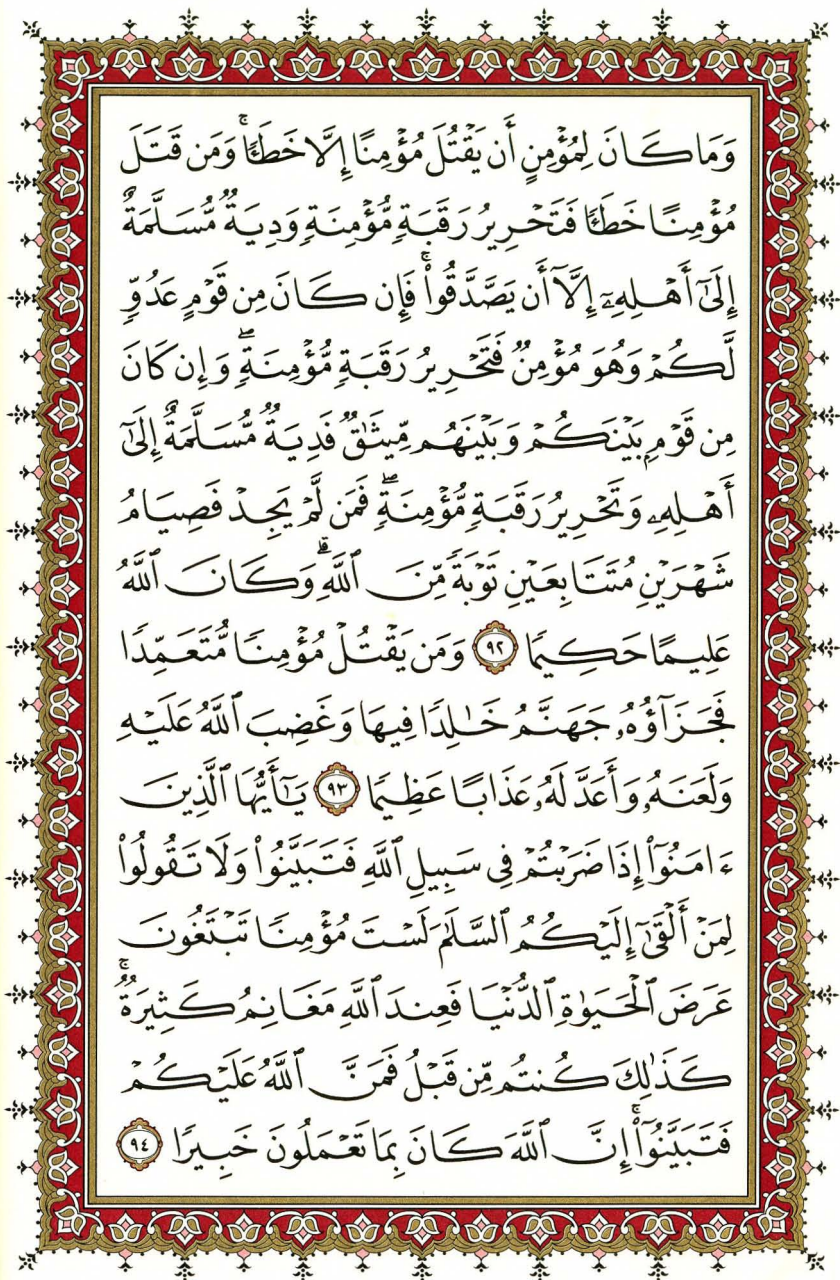 وَمَا كَانَ لِمُؤۡمِنٍ أَن يَقۡتُلَ مُؤۡمِنًا إِلَّا خَطَـٔٗاۚ وَمَن قَتَلَ
مُؤۡمِنًا خَطَـٔٗا فَتَحۡرِيرُ رَقَبَةٖ مُّؤۡمِنَةٖ وَدِيَةٞ مُّسَلَّمَةٌ
إِلَىٰٓ أَهۡلِهِۦٓ إِلَّآ أَن يَصَّدَّقُواْۚ فَإِن كَانَ مِن قَوۡمٍ عَدُوّٖ
لَّكُمۡ وَهُوَ مُؤۡمِنٞ فَتَحۡرِيرُ رَقَبَةٖ مُّؤۡمِنَةٖۖ وَإِن كَانَ
مِن قَوۡمِۭ بَيۡنَكُمۡ وَبَيۡنَهُم مِّيثَٰقٞ فَدِيَةٞ مُّسَلَّمَةٌ إِلَىٰٓ
أَهۡلِهِۦ وَتَحۡرِيرُ رَقَبَةٖ مُّؤۡمِنَةٖۖ فَمَن لَّمۡ يَجِدۡ فَصِيَامُ
شَهۡرَيۡنِ مُتَتَابِعَيۡنِ تَوۡبَةٗ مِّنَ ٱللَّهِۗ وَكَانَ ٱللَّهُ
عَلِيمًا حَكِيمٗا ٩٢ وَمَن يَقۡتُلۡ مُؤۡمِنٗا مُّتَعَمِّدٗا
فَجَزَآؤُهُۥ جَهَنَّمُ خَٰلِدٗا فِيهَا وَغَضِبَ ٱللَّهُ عَلَيۡهِ
وَلَعَنَهُۥ وَأَعَدَّ لَهُۥ عَذَابًا عَظِيمٗا ٩٣ يَٰٓأَيُّهَا ٱلَّذِينَ
ءَامَنُوٓاْ إِذَا ضَرَبۡتُمۡ فِي سَبِيلِ ٱللَّهِ فَتَبَيَّنُواْ وَلَا تَقُولُواْ
لِمَنۡ أَلۡقَىٰٓ إِلَيۡكُمُ ٱلسَّلَٰمَ لَسۡتَ مُؤۡمِنٗا تَبۡتَغُونَ
عَرَضَ ٱلۡحَيَوٰةِ ٱلدُّنۡيَا فَعِندَ ٱللَّهِ مَغَانِمُ كَثِيرَةٞۚ
كَذَٰلِكَ كُنتُم مِّن قَبۡلُ فَمَنَّ ٱللَّهُ عَلَيۡكُمۡ
فَتَبَيَّنُوٓاْۚ إِنَّ ٱللَّهَ كَانَ بِمَا تَعۡمَلُونَ خَبِيرٗا ٩٤